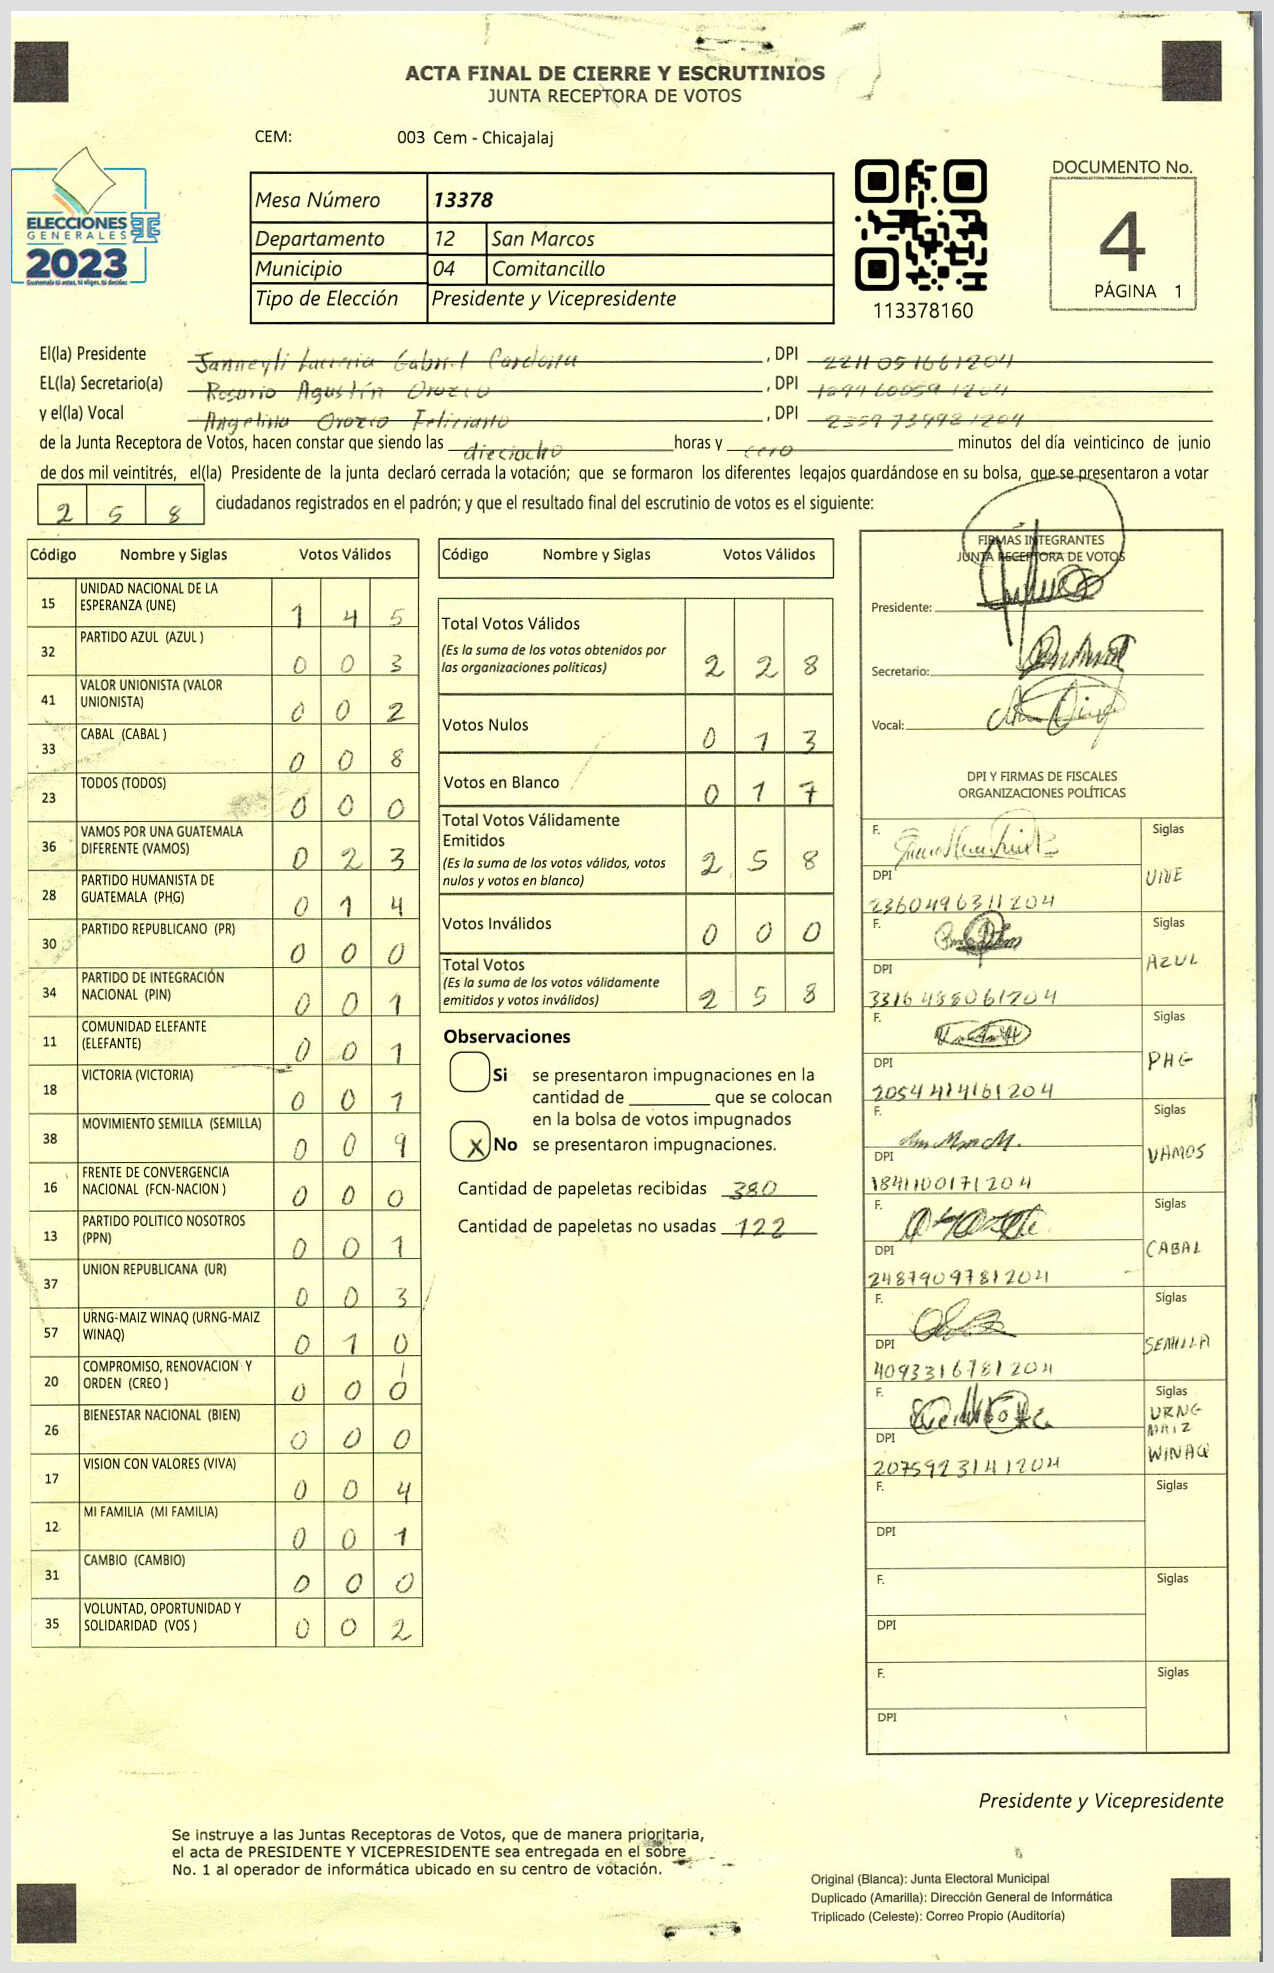 ACTA FINAL DE CIERRE Y ESCRUTINIOS
JUNTA RECEPTORA DE VOTOS
CEM: 003 Cem - Chicajalaj
ELECCIONES
GENERALES
2023
Guatemala tú votas, tú eliges, tú decides
Mesa Número 13378
Departamento 12 San Marcos
Municipio 04 Comitancillo
Tipo de Elección Presidente y Vicepresidente
113378160
DOCUMENTO No.
4
PÁGINA 1
El(la) Presidente Gabriel Cardona , DPI
EL(la) Secretario(a) Rosario Agustín Orozco , DPI
y el(la) Vocal Angelina Orozco Feliciano , DPI 2359739981204
de la Junta Receptora de Votos, hacen constar que siendo las dieciocho horas y cero minutos del día veinticinco de junio
de dos mil veintitrés, el(la) Presidente de la junta declaró cerrada la votación; que se formaron los diferentes legajos quardándose en su bolsa, que se presentaron a votar
2 5 8 ciudadanos registrados en el padrón; y que el resultado final del escrutinio de votos es el siguiente:
Código Nombre y Siglas Votos Válidos
15 UNIDAD NACIONAL DE LA
ESPERANZA (UNE) 1 4 5
32 PARTIDO AZUL (AZUL ) 0 0 3
41 VALOR UNIONISTA (VALOR
UNIONISTA) 0 0 2
33 CABAL (CABAL ) 0 0 8
23 TODOS (TODOS) 0 0 0
36 VAMOS POR UNA GUATEMALA
DIFERENTE (VAMOS) 0 2 3
28 PARTIDO HUMANISTA DE
GUATEMALA (PHG) 0 1 4
30 PARTIDO REPUBLICANO (PR) 0 0 0
34 PARTIDO DE INTEGRACIÓN
NACIONAL (PIN) 0 0 1
11 COMUNIDAD ELEFANTE
(ELEFANTE) 0 0 1
18 VICTORIA (VICTORIA) 0 0 1
38 MOVIMIENTO SEMILLA (SEMILLA) 0 0 9
16 FRENTE DE CONVERGENCIA
NACIONAL (FCN-NACION ) 0 0 0
13 PARTIDO POLITICO NOSOTROS
(PPN) 0 0 1
37 UNION REPUBLICANA (UR) 0 0 3
57 URNG-MAIZ WINAQ (URNG-MAIZ
WINAQ) 0 1 0
20 COMPROMISO, RENOVACION Y
ORDEN (CREO ) 0 0 0
26 BIENESTAR NACIONAL (BIEN) 0 0 0
17 VISION CON VALORES (VIVA) 0 0 4
12 MI FAMILIA (MI FAMILIA) 0 0 1
31 CAMBIO (CAMBIO) 0 0 0
35 VOLUNTAD, OPORTUNIDAD Y
SOLIDARIDAD (VOS ) 0 0 2
Código Nombre y Siglas Votos Válidos
Total Votos Válidos
(Es la suma de los votos obtenidos por
las organizaciones políticas) 2 2 8
Votos Nulos 0 1 3
Votos en Blanco 0 1 7
Total Votos Válidamente
Emitidos
(Es la suma de los votos válidos, votos
nulos y votos en blanco) 2 5 8
Votos Inválidos 0 0 0
Total Votos
(Es la suma de los votos válidamente
emitidos y votos inválidos) 2 5 8
Observaciones
Si se presentaron impugnaciones en la
cantidad de ________ que se colocan
en la bolsa de votos impugnados
X No se presentaron impugnaciones.
Cantidad de papeletas recibidas 380
Cantidad de papeletas no usadas 122
FIRMAS INTEGRANTES
JUNTA RECEPTORA DE VOTOS
Presidente:
Secretario:
Vocal:
DPI Y FIRMAS DE FISCALES
ORGANIZACIONES POLÍTICAS
F. Siglas
DPI UNE
2360496311204
F. Siglas
DPI AZUL
F. Siglas
DPI PHG
2054414161204
F. Siglas
DPI VAMOS
1841100171204
F. Siglas
DPI CABAL
2487909781204
F. Siglas
DPI SEMILLA
4093316781204
F. Siglas
URNG
MAIZ
DPI WINAQ
2075923141204
F. Siglas
DPI
F. Siglas
DPI
F. Siglas
DPI
Presidente y Vicepresidente
Se instruye a las Juntas Receptoras de Votos, que de manera prioritaria,
el acta de PRESIDENTE Y VICEPRESIDENTE sea entregada en el sobre
No. 1 al operador de informática ubicado en su centro de votación.
Original (Blanca): Junta Electoral Municipal
Duplicado (Amarilla): Dirección General de Informática
Triplicado (Celeste): Correo Propio (Auditoría)